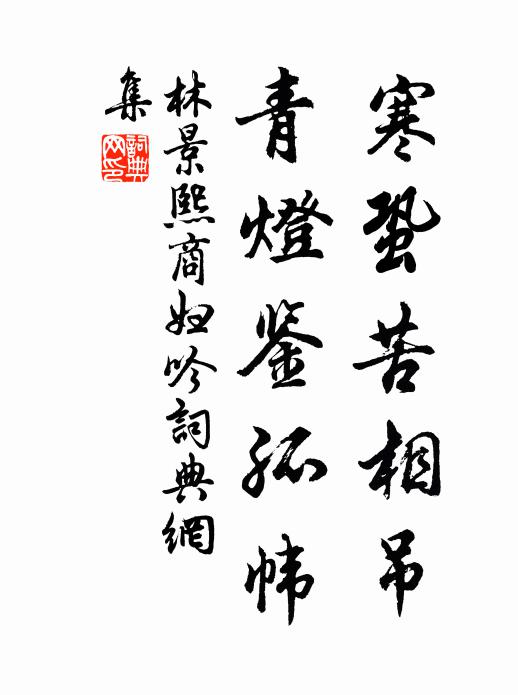 寒蛩苦相吊
青燈鉴孤帏
林景熙商妇吟詞典網
集
詞典网印